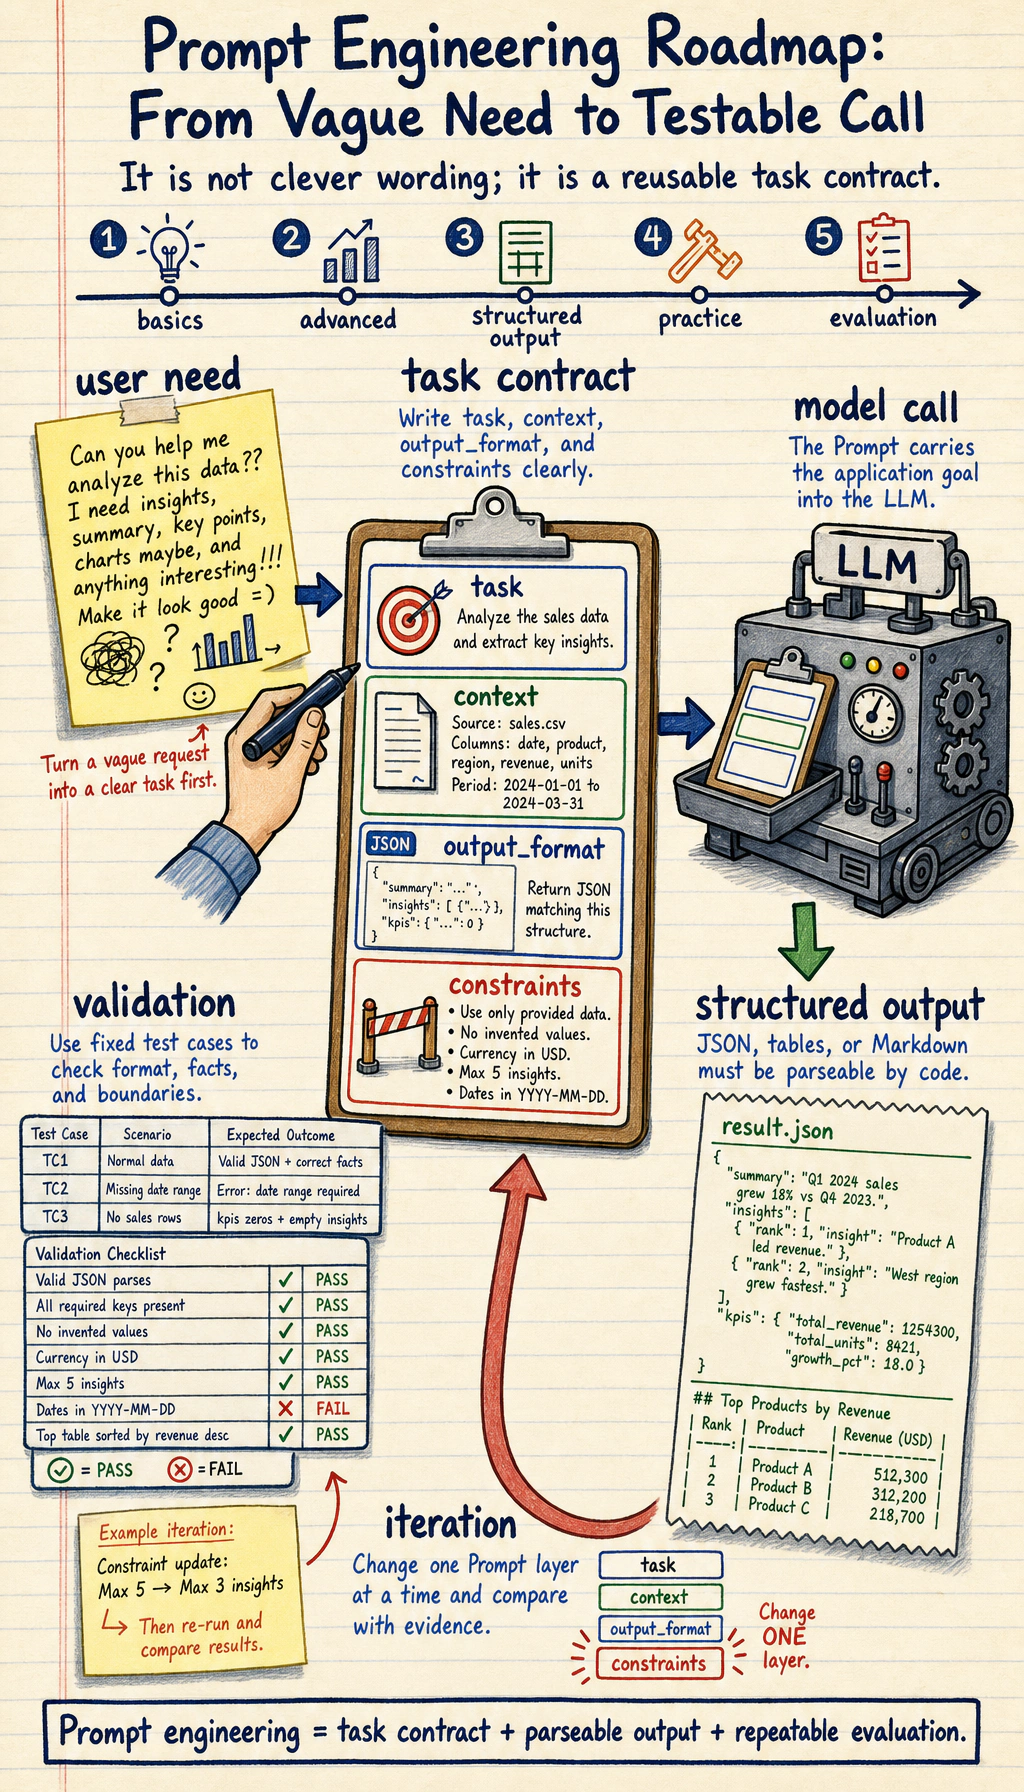 Prompt Engineering Roadmap:
From Vague Need to Testable Call
It is not clever wording; it is a reusable task contract.
1
2
3
4
5
basics
advanced
structured
output
practice
evaluation
user need
Can you help me
analyze this data??
I need insights,
summary, key points,
charts maybe, and
anything interesting!!!
Make it look good =)
?
?
Turn a vague request
into a clear task first.
task contract
Write task, context,
output_format, and
constraints clearly.
task
Analyze the sales data
and extract key insights.
context
Source: sales.csv
Columns: date, product,
region, revenue, units
Period: 2024-01-01 to
2024-03-31
JSON
output_format
{
"summary": "...",
"insights": [ {"..."} ],
"kpis": { "...": 0 }
}
Return JSON
matching this
structure.
constraints
• Use only provided data.
• No invented values.
• Currency in USD.
• Max 5 insights.
• Dates in YYYY-MM-DD.
model call
The Prompt carries
the application goal
into the LLM.
LLM
structured output
JSON, tables, or Markdown
must be parseable by code.
result.json
{
"summary": "Q1 2024 sales
grew 18% vs Q4 2023.",
"insights": [
{ "rank": 1, "insight": "Product A
led revenue." },
{ "rank": 2, "insight": "West region
grew fastest." }
],
"kpis": { "total_revenue": 1254300,
"total_units": 8421,
"growth_pct": 18.0 }
}
## Top Products by Revenue
| Rank | Product | Revenue (USD) |
|----:|---------|-------------|
1 | Product A | 512,300 |
2 | Product B | 312,200 |
3 | Product C | 218,700 |
validation
Use fixed test cases to
check format, facts,
and boundaries.
Test Case Scenario Expected Outcome
TC1 Normal data Valid JSON + correct facts
TC2 Missing date range Error: date range required
TC3 No sales rows kpis zeros + empty insights
Validation Checklist
Valid JSON parses ✓ PASS
All required keys present ✓ PASS
No invented values ✓ PASS
Currency in USD ✓ PASS
Max 5 insights ✓ PASS
Dates in YYYY-MM-DD ✗ FAIL
Top table sorted by revenue desc ✓ PASS
✓ = PASS ✗ = FAIL
Example iteration:
Constraint update:
Max 5 → Max 3 insights
↳ Then re-run and
compare results.
iteration
Change one Prompt layer
at a time and compare
with evidence.
task
context
output_format
constraints
Change
ONE
layer.
Prompt engineering = task contract + parseable output + repeatable evaluation.